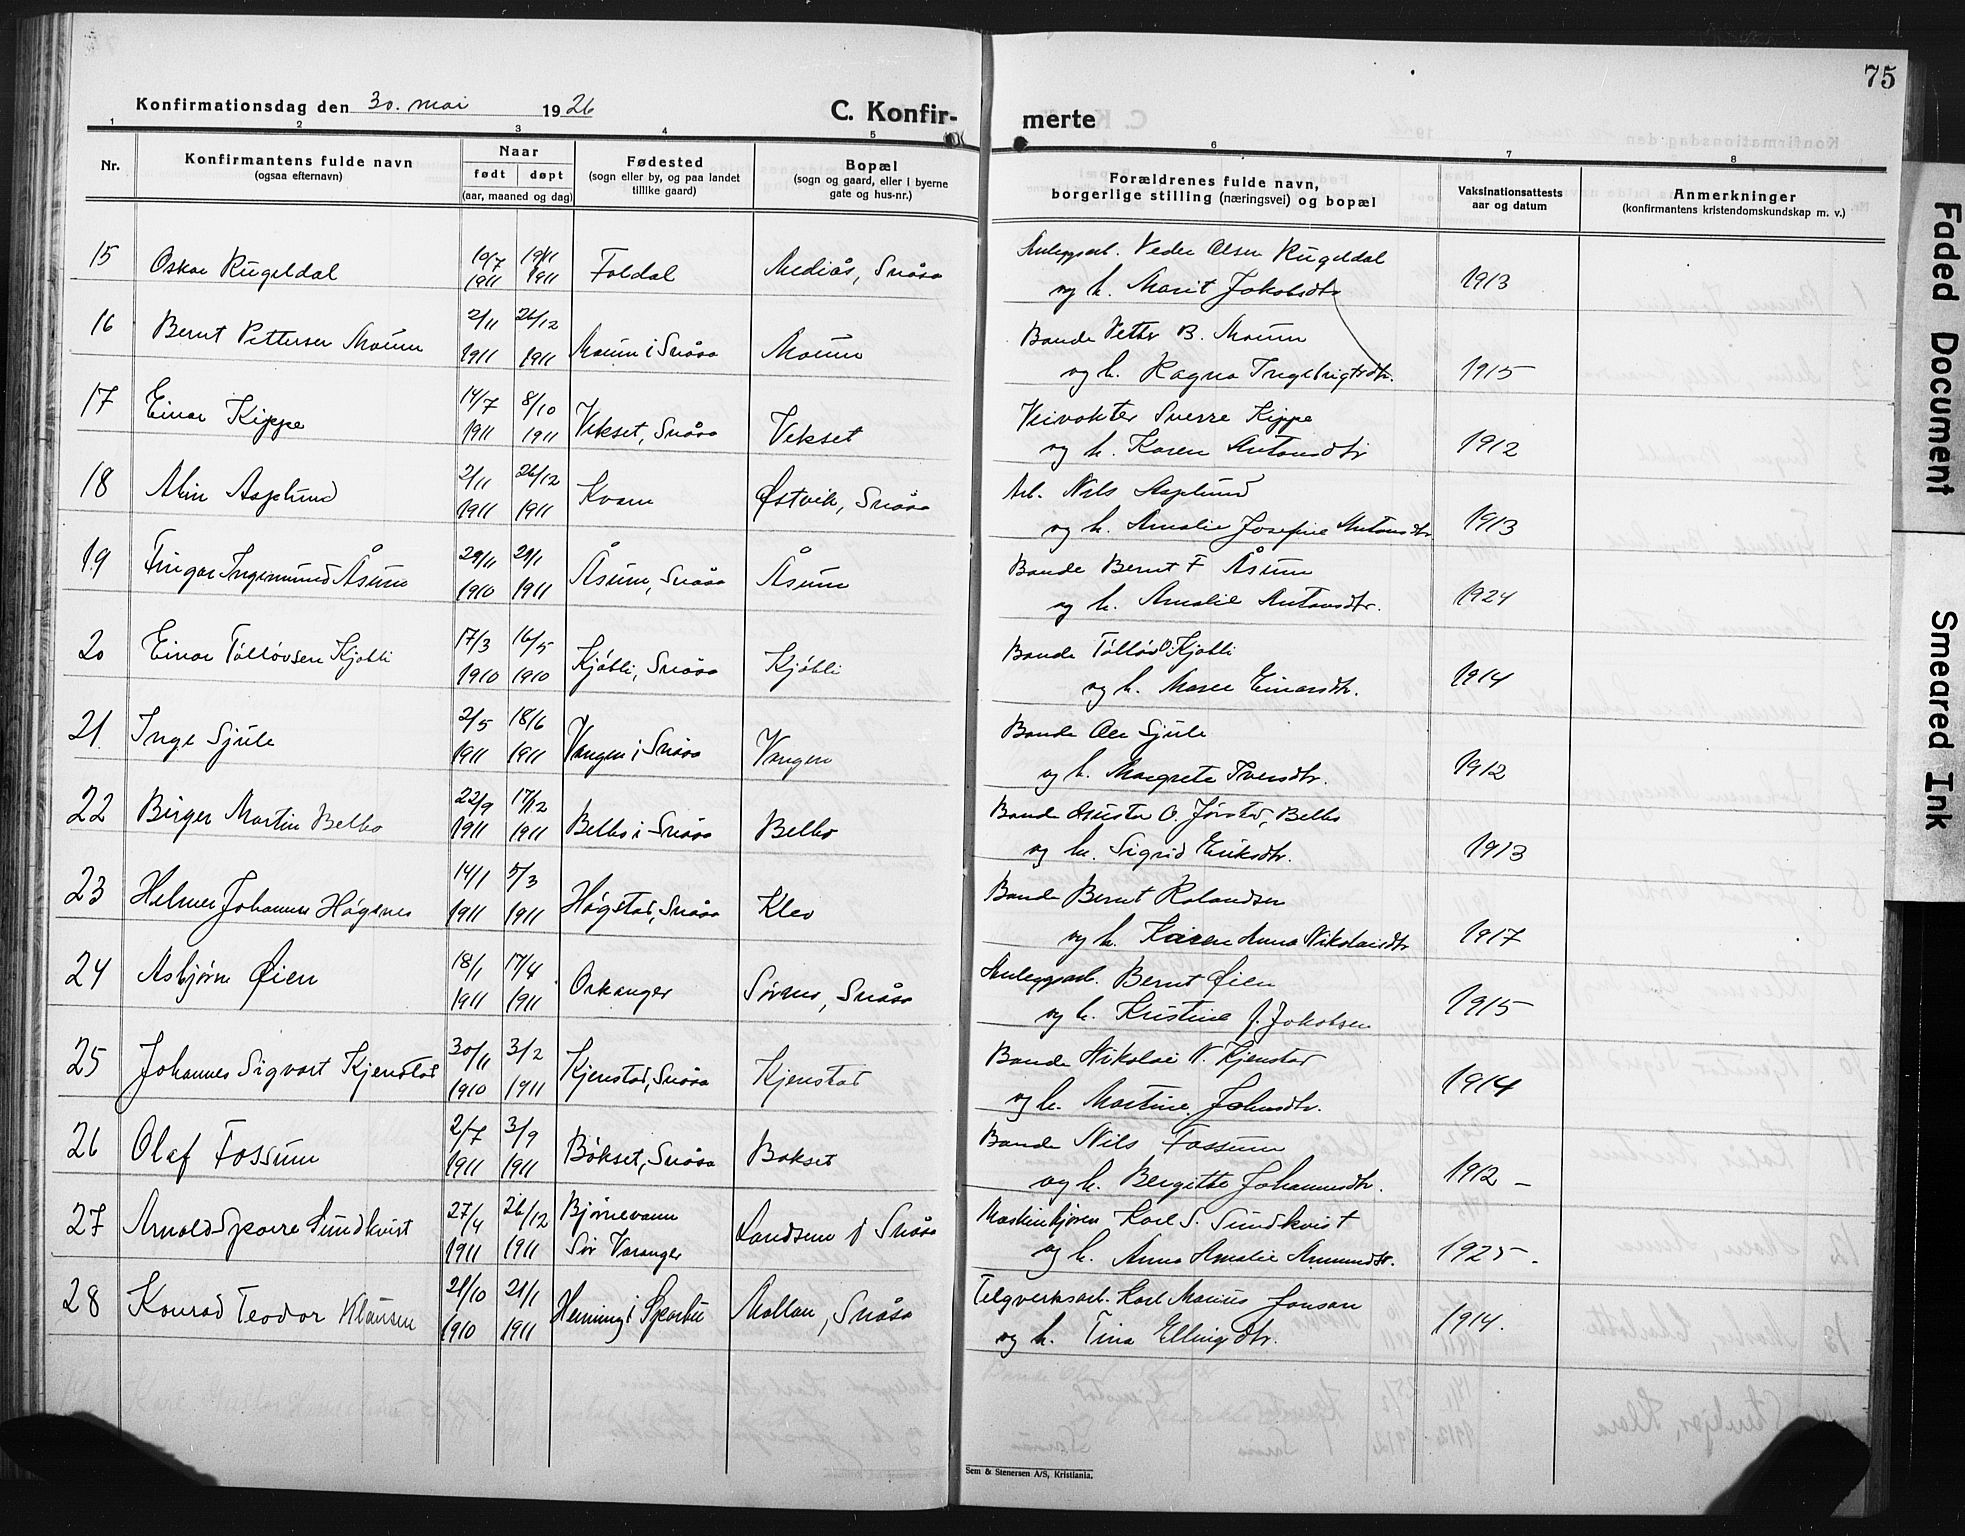 75
Konfirmationsdag den 30. mai 1926
C. Konfirmerte
1 2 3 4 5 6 7 8
Nr.
Konfirmantens fulde navn
(ogsaa efternavn)
Naar
født døpt
(aar, maaned og dag)
Fødested
(sogn eller by, og paa landet
tillike gaard)
Bopæl
(sogn og gaard, eller i byerne
gate og hus-nr.)
Forældrenes fulde navn,
borgerlige stilling (næringsvei) og bopæl
Vaksinationsattests
aar og datum
Anmerkninger
(konfirmantens kristendomskundskap m. v.)
15 Oskar Rugeldal 19/7 1911 19/11 1911 Foldal Mediås, Snåsa Anleggsarb. Peder Olsen Rugeldal
og h. Marit Jakobsdtr 1913
16 Bernt Pettersen Moum 2/11 1911 26/12 1911 Moum i Snåsa Moum Bonde Petter B. Moum
og h. Ragna Ingebrigtsdtr. 1915
17 Einar Kippe 14/7 1911 8/10 1911 Vekset, Snåsa Vekset Veivokter Sverre Kippe
og h. Karen Antonsdtr 1912
18 Alin Asplund 2/11 1911 26/12 1911 Kvam Østvik, Snåsa Arb. Nils Asplund
og h. Amalie Josefine Antonsdtr 1913
19 Fingar Ingemund Åsum 29/11 1910 29/1 1911 Åsum, Snåsa Åsum Bonde Bernt F Åsum
og h. Amalie Antonsdtr. 1924
20 Einar Tølløvsen Kjøbli 17/3 1910 16/5 1910 Kjøbli, Snåsa Kjøbli Bonde Kjøbli
og h. Maree Einarsdtr. 1914
21. Inge Sjule 2/5 1911 18/6 1911 Vangen i Snåsa Vangen Bonde Ole Sjule
og h. Margrete Iversdtr. 1912
22 Birger Martin Belbo 22/9 1911 17/12 1911 Belbo i Snåsa Belbo Bonde Gustav O. Jørstad, Belbo
og h. Sigrid Eriksdtr. 1913
23 Helmer Johannes Høgsnes 14/1 1911 5/3 1911 Høgstad, Snåsa Klev Bonde Bernt Rolandsen
og h. Karen Anna Nikolaisdtr 1917
24 Asbjørn Øien 18/1 1911 17/4 1911 Orkanger Snåsa Anleggsarb. Bernt Øien
og h. Kristine f. Jakobsen 1915
25 Johannes Sigvart Kjenstad 30/11 1910 3/2 1911 Kjenstad, Snåsa Kjenstad Bonde Nikolai N. Kjenstad
og h. Martine Johnsdtr. 1914
26 Olaf Fossum 2/7 1911 3/9 1911 Bökset, Snåsa Bøkset Bonde Nils Fossum
og h. Bergitte Johannesdtr. 1912 –
27 Arnold Sparre Sundkvist 27/4 1911 26/12 1911 Bjørnevann
Sør Varanger Landsem i Snåsa Maskinkjører Karl S. Sundkvist
og h. Anna Amalie Amundsdtr. 1925 –.
28 Konrad Teodor Klausen 21/10 1910 21/1 1911 Henning i Sparbu Moltan, Snåsa Teglverksarb. Karl Marius Jonsen
og h. Tina Ellingsdtr. 1914.
Sem & Stenersen A/S, Kristiania.
Faded Document
Smeared Ink